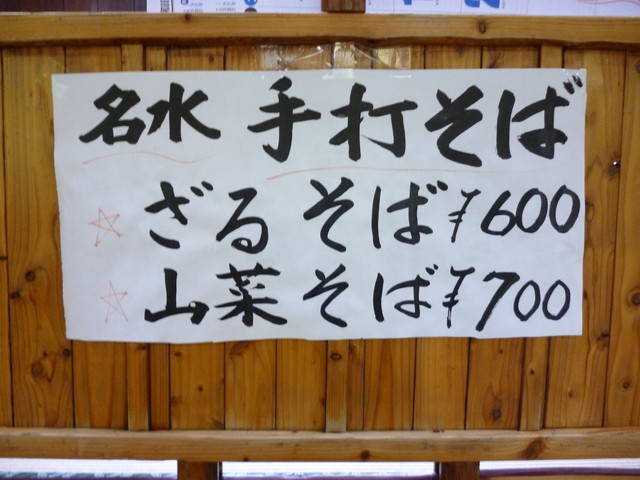 名水 手打そば
☆ ざるそば ¥600
☆ 山菜そば ¥700